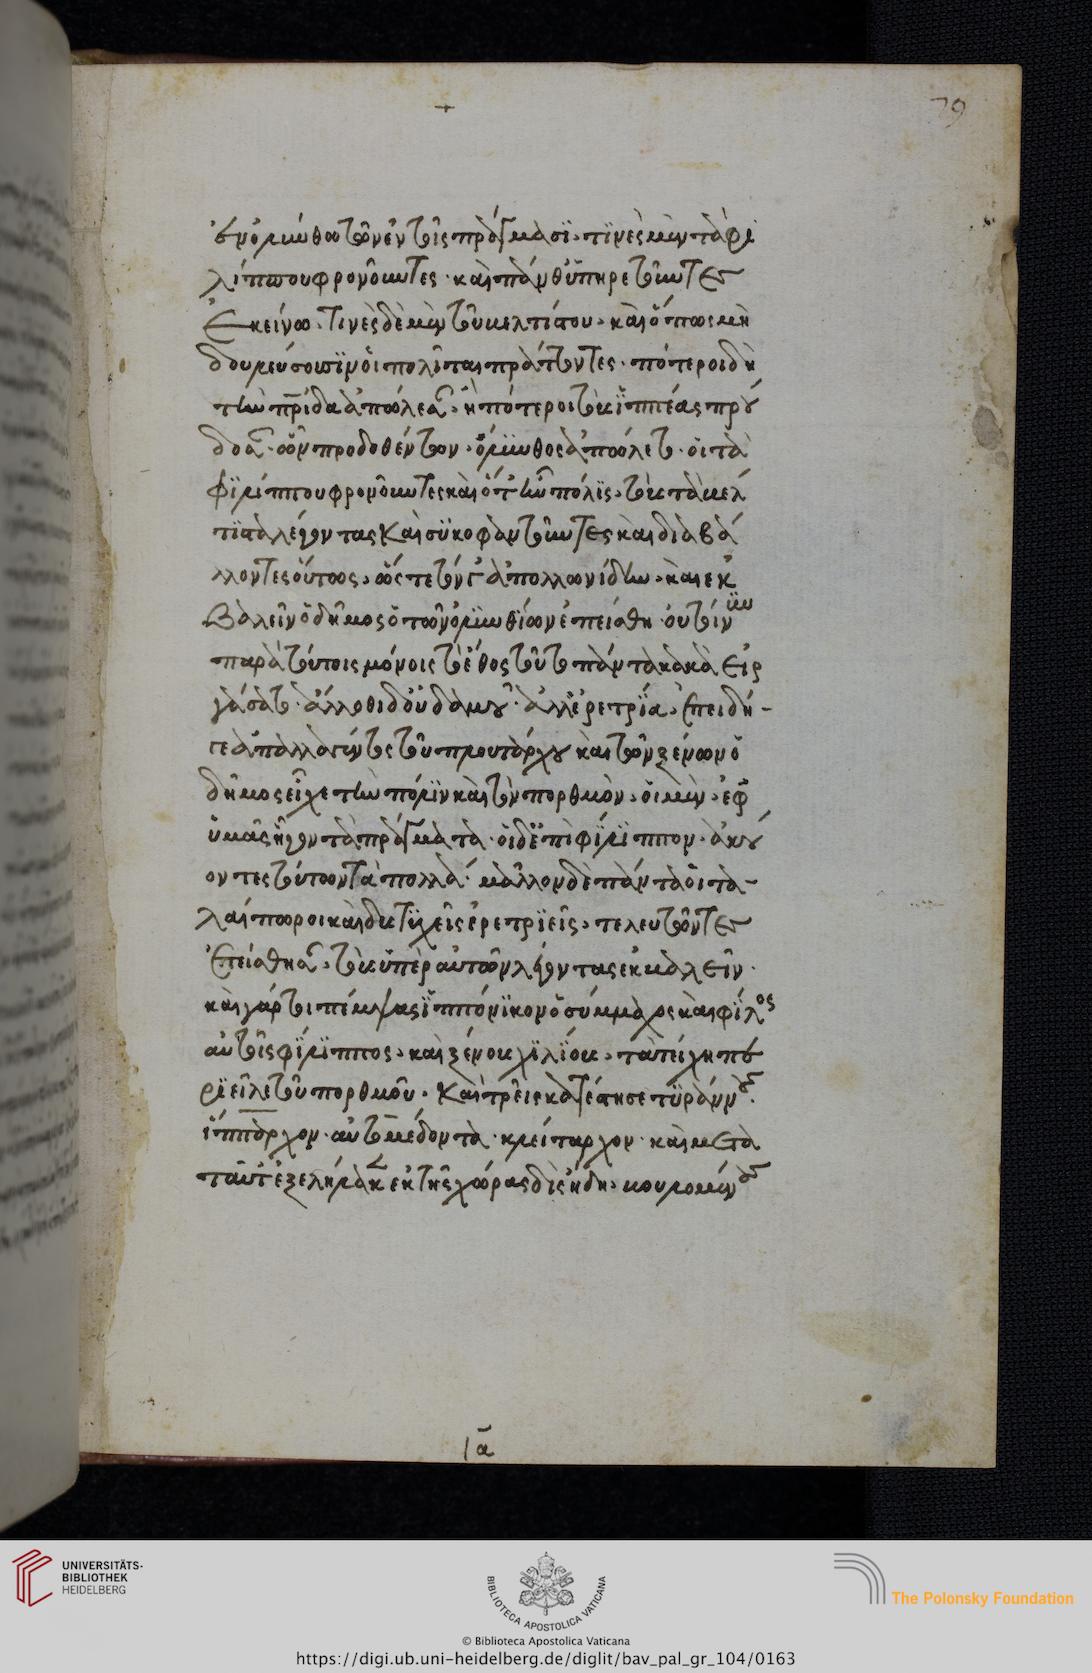 79
ἐν ὀλύνθω τῶν ἐν τοῖς πράγμασϊ· τϊνὲς μὲν τὰ φϊ
λίππου φρονοῦντες· καὶ πάνθ ὑπηρετοῦντες
ἐκείνω· τινὲς δὲ μὲν τοῦ βελτίστου· καὶ ὅπως μὴ
δουλεύσουσϊν οἱ πολῖται πράττοντες· πότεροι δὴ
τὴν πρίδα ἀπώλεσαν· ἢ πότεροι τοὺς ἱππέας πρού
δοσαν· ὧν προδοθέντων· ὄλϋνθος ἀπώλετο· οἱ τὰ
φϊλίππου φρονοῦντες καὶ ὅτ ἦν πόλϊς· τοὺς τὰ βέλ
τϊστα λέγοντας καὶ συκοφαντοῦντες καὶ διαβά
λλοντες οὕτως· ὥστε τόν γ ἀπολλωνίδην· καὶ ἐκ
βαλεῖν ὁ δῆμος ὁ τῶν ὀλϋνθίων ἐπείσθη· οὐ τοίνϋν
παρὰ τούτοις μόνοις τὸ ἔθος τοῦτο πάντα κακὰ εἰρ
γάσατο· ἄλλοθι δ οὐδαμοῦ· ἀλλ ἐρετρίᾳ· ἐπειδὴ
τε ἀπαλλαγέντος τοῦ πλουτάρχου καὶ τῶν ξένων ὁ
δῆμος εἶχε τὴν πόλϊν καὶ τὸν πορθμὸν· οἱ μὲν· ἐφ
ὑμᾶς ἦγον τὰ πράγματα· οἱ δ ἐπὶ φϊλϊππον· ἀκού
οντες τούτων τὰ πολλὰ· μᾶλλον δὲ πάντα οἱ τα
λαίπωροι καὶ δυστυχεῖς ἐρετρϊεῖς· τελευτῶντες
ἐπείσθησαν· τοὺς ὑπὲρ αὐτῶν λέγοντας ἐκβαλεῖν·
καὶ γάρ τοι πέμψας ἱππόνϊκον ὁ σύμμαχος καὶ φίλος
αὐτοῖς φίλϊππος· καὶ ξένους χϊλίους· τὰ τείχη πε
ρϊεῖλε τοῦ πορθμοῦ· καὶ τρεῖς κατέστησε τϋράννους·
ἵππαρχον· αὐτομέδοντα· κλείταρχον· καὶ μετὰ
ταῦτ ἐξελήλακεν ἐκ τῆς χώρας δὶς ἤδη· βουλομένους
ια
UNIVERSITÄTS-
BIBLIOTHEK
HEIDELBERG
BIBLIOTECA APOSTOLICA VATICANA
The Polonsky Foundation
© Biblioteca Apostolica Vaticana
https://digi.ub.uni-heidelberg.de/diglit/bav_pal_gr_104/0163